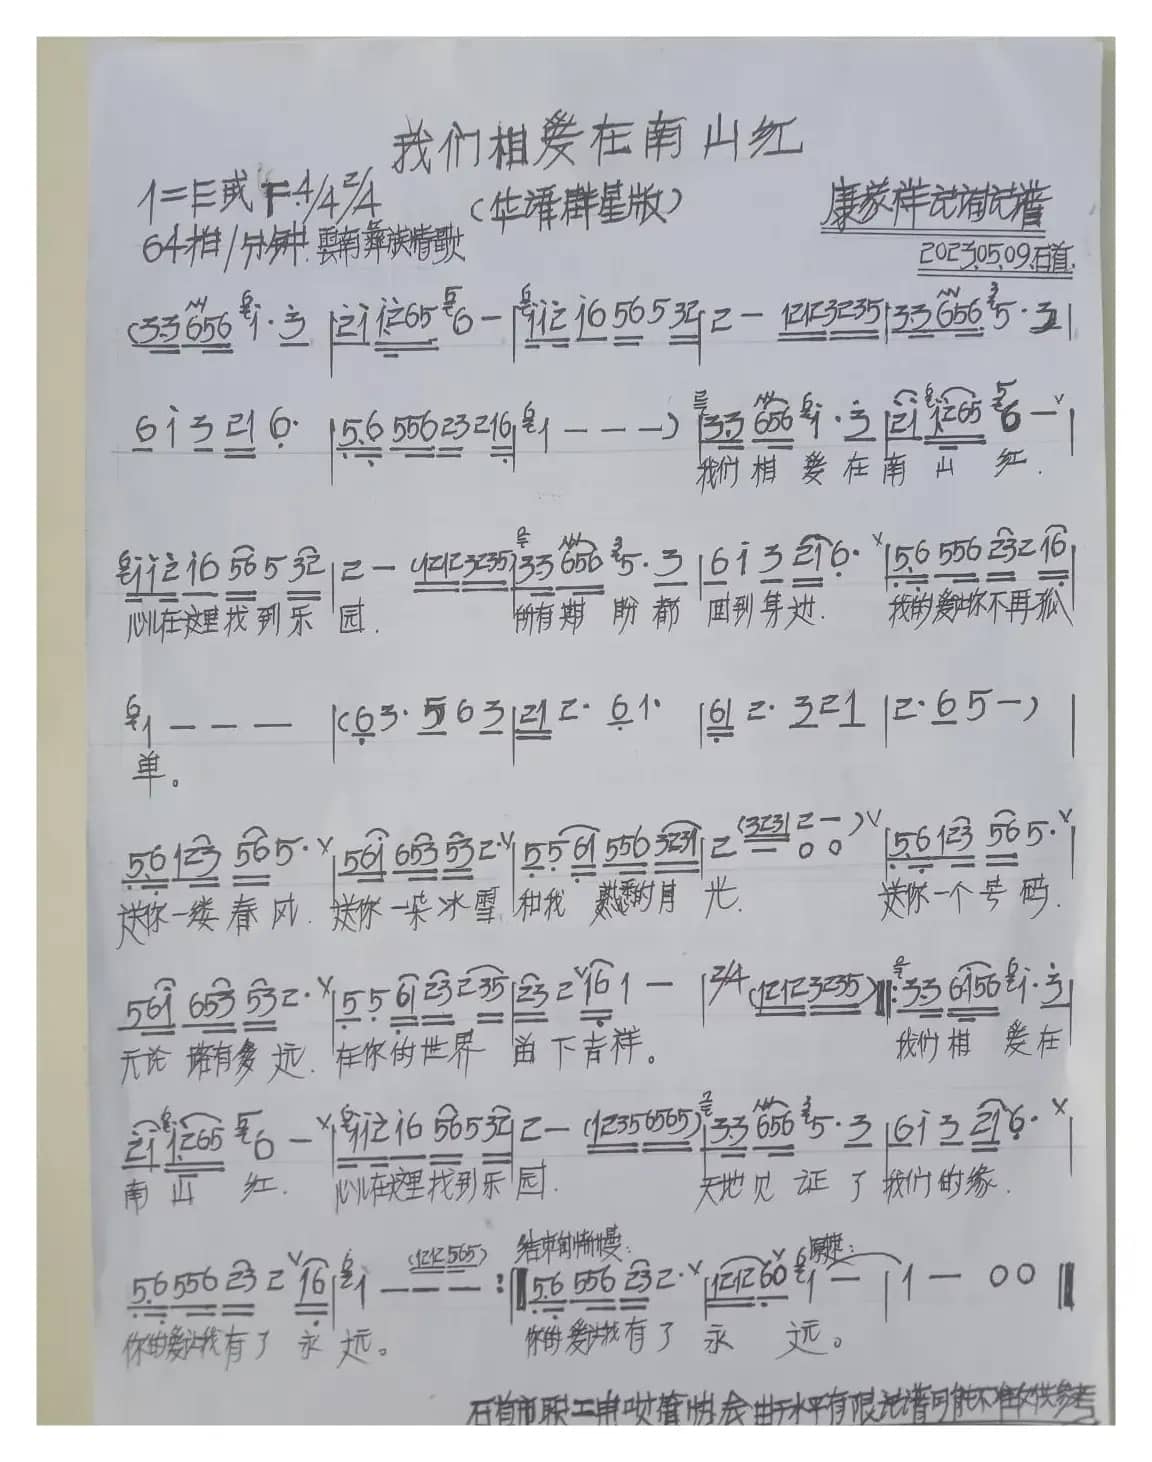 我们相爱在南山红
1=E或F 4/4 2/4
(华语群星版)
康家祥记词记谱
64拍/分钟 雲南彝族情歌
2023.05.09.石首.
(3.3 656 i·3 | 2i i265 6 - | 1i2 i6 56 5 32 | 2 - 1212 3235 | 3.3 656 5·3 |
6 i 3 21 6· | 5.6 556 23 216 | 1 - - - ) | 3.3 656 i·3 | 2i i265 6 - ∨ |
我们相爱在南山红.
i i2 i6 56 5 32 | 2 - (1212 3235) | 3.3 656 5·3 | 6 i 3 21 6· ∨ | 5.6 556 23 2 16 |
心儿在这里找到乐园. 所有期盼都回到身边. 我的爱让你不再孤
1 - - - | (6 3· 5 6 3 | 21 2· 6 1· | 61 2· 3 2 1 | 2· 6 5 - ) |
单。
5.6 123 56 5· ∨ | 56i 653 53 2· ∨ | 5 5 61 556 3231 | 2 (3231 2 - ) ∨ | 5.6 123 56 5· ∨ |
0 0
送你一缕春风. 送你一朵冰雪 和我熟悉的月光. 送你一个号码.
56i 653 53 2· ∨ | 5 5 61 23 2 35 | 23 2 ∨ 16 1 - | 2/4 (1212 3235) ‖: 3.3 6156 i·3 |
无论拥有多远. 在你的世界留下吉祥。 我们相爱在
2i i265 6 - ∨ | 1i2 i6 56 5 32 | 2 - (1235 6565) | 3.3 656 5·3 | 6 i 3 21 6· ∨ |
南山红. 心儿在这里找到乐园. 天地见证了我们的缘.
结束句渐慢: 原速:
5.6 556 23 2 ∨ 16 | i - - - (1212 565) :‖ 5.6 556 23 2· ∨ | 1212 60 ∨ 1 - | 1 - 0 0 ‖
你的爱让我有了永远。 你的爱让我有了永远。
石首市职工电吹管协会 由于水平有限记谱可能不准仅供参考